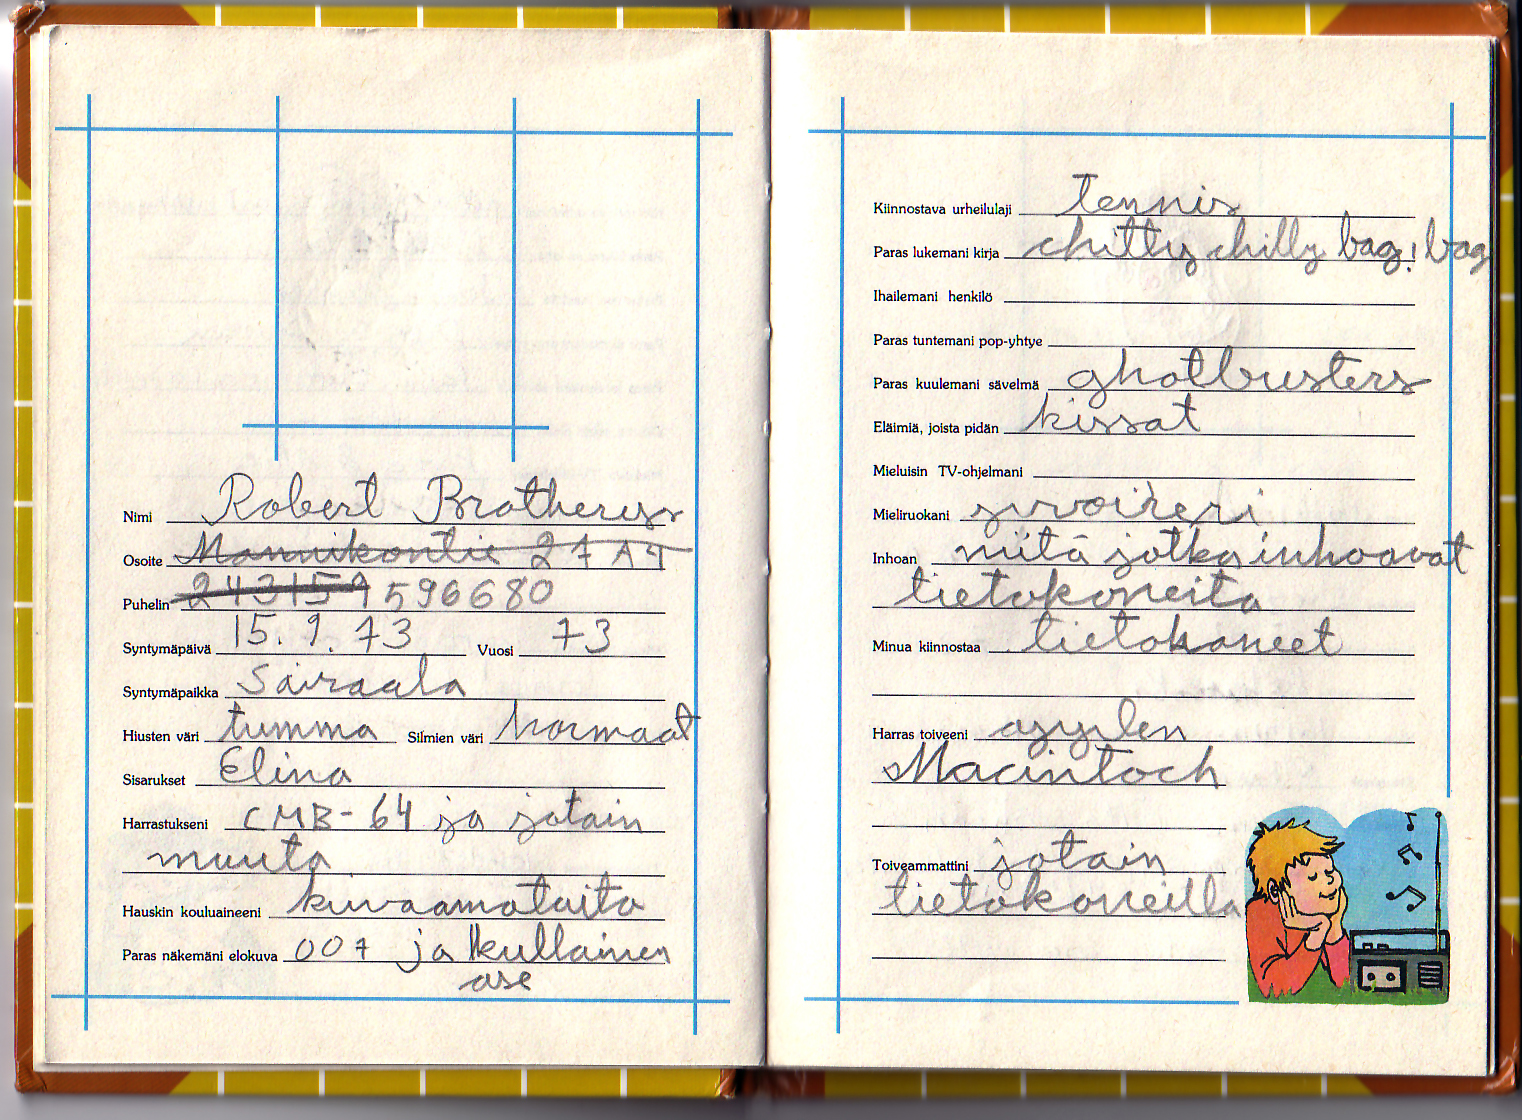 Nimi Robert Brotherus
Osoite Mannikontie 27 A 4
Puhelin 243159 596680
Syntymäpäivä 15. 9. 73 Vuosi 73
Syntymäpaikka Sairaala
Hiusten väri tumma Silmien väri Normaat
Sisarukset Elina
Harrastukseni CMB-64 ja jotain
muuta
Hauskin kouluaineeni kuvaamataito
Paras näkemäni elokuva 007 ja kullainen
ase
Kiinnostava urheilulaji tennis
Paras lukemani kirja chitty chilly bag! bag
Ihailemani henkilö
Paras tuntemani pop-yhtye
Paras kuulemani sävelmä ghotbusters
Eläimiä, joista pidän kissat
Mieluisin TV-ohjelmani
Mieliruokani
Inhoan niitä jotka inhoavat
tietokoneita
Minua kiinnostaa tietokoneet
Harras toiveeni
Macintoch
Toiveammattini jotain
tietokoneilla